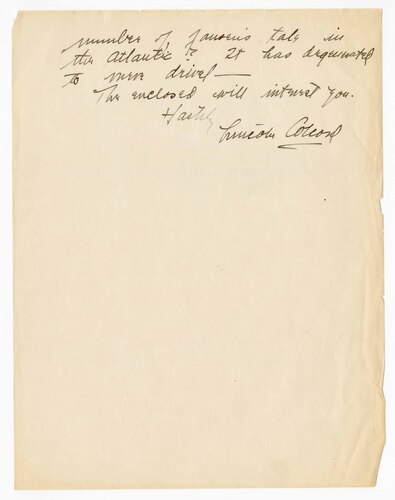 number of Jansens tale in
the Atlantic? It has degenerated
to mere drivel —
The enclosed will interest you.
Hastily
Lincoln Colcord